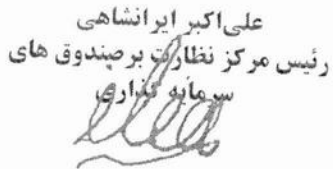 علی‌اکبر ایرانشاهی
رئیس مرکز نظارت بر صندوق های
سرمایه گذاری